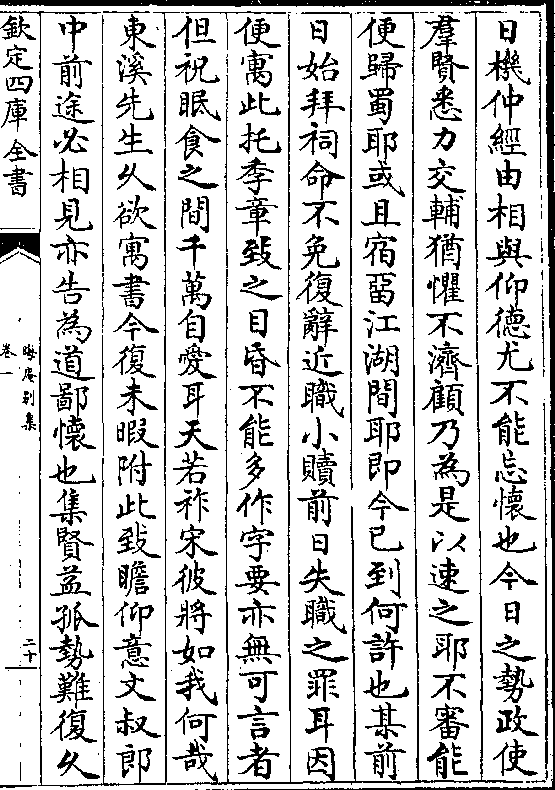 日機仲經由相與仰德尤不能忘懷也今日之勢政使
羣賢悉力交輔猶懼不濟顧乃為是以速之耶不審能
便歸蜀耶或且宿留江湖間耶即今已到何許也某前
日始拜祠命不免復辭近職小贖前日失職之罪耳因
便寓此托季章致之目昏不能多作字要亦無可言者
但祝眠食之間千萬自愛耳天若祚宋彼將如我何哉
東溪先生久欲寓書今復未暇附此致瞻仰意文叔郎
中前途必相見亦告為道鄙懷也集賢益孤勢難復久
欽定四庫全書
晦庵別集
卷一
二十